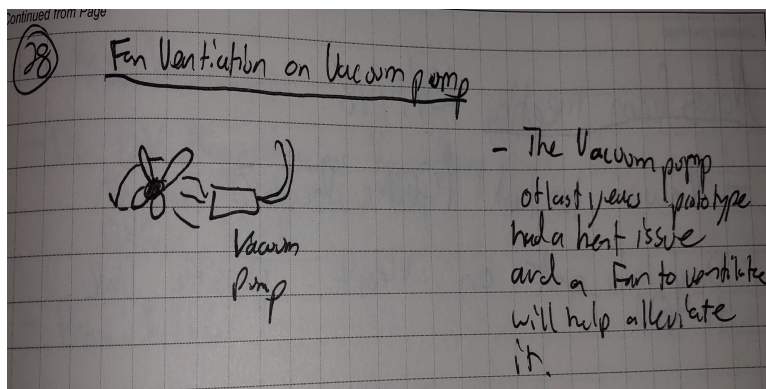 Continued from Page
28
Fan Ventiation on Vacuum pump
Vacuum
Pump
- The Vacuum pump
of last years prototype
had a heat issue
and a Fan to ventilate
will help allevilate
it.